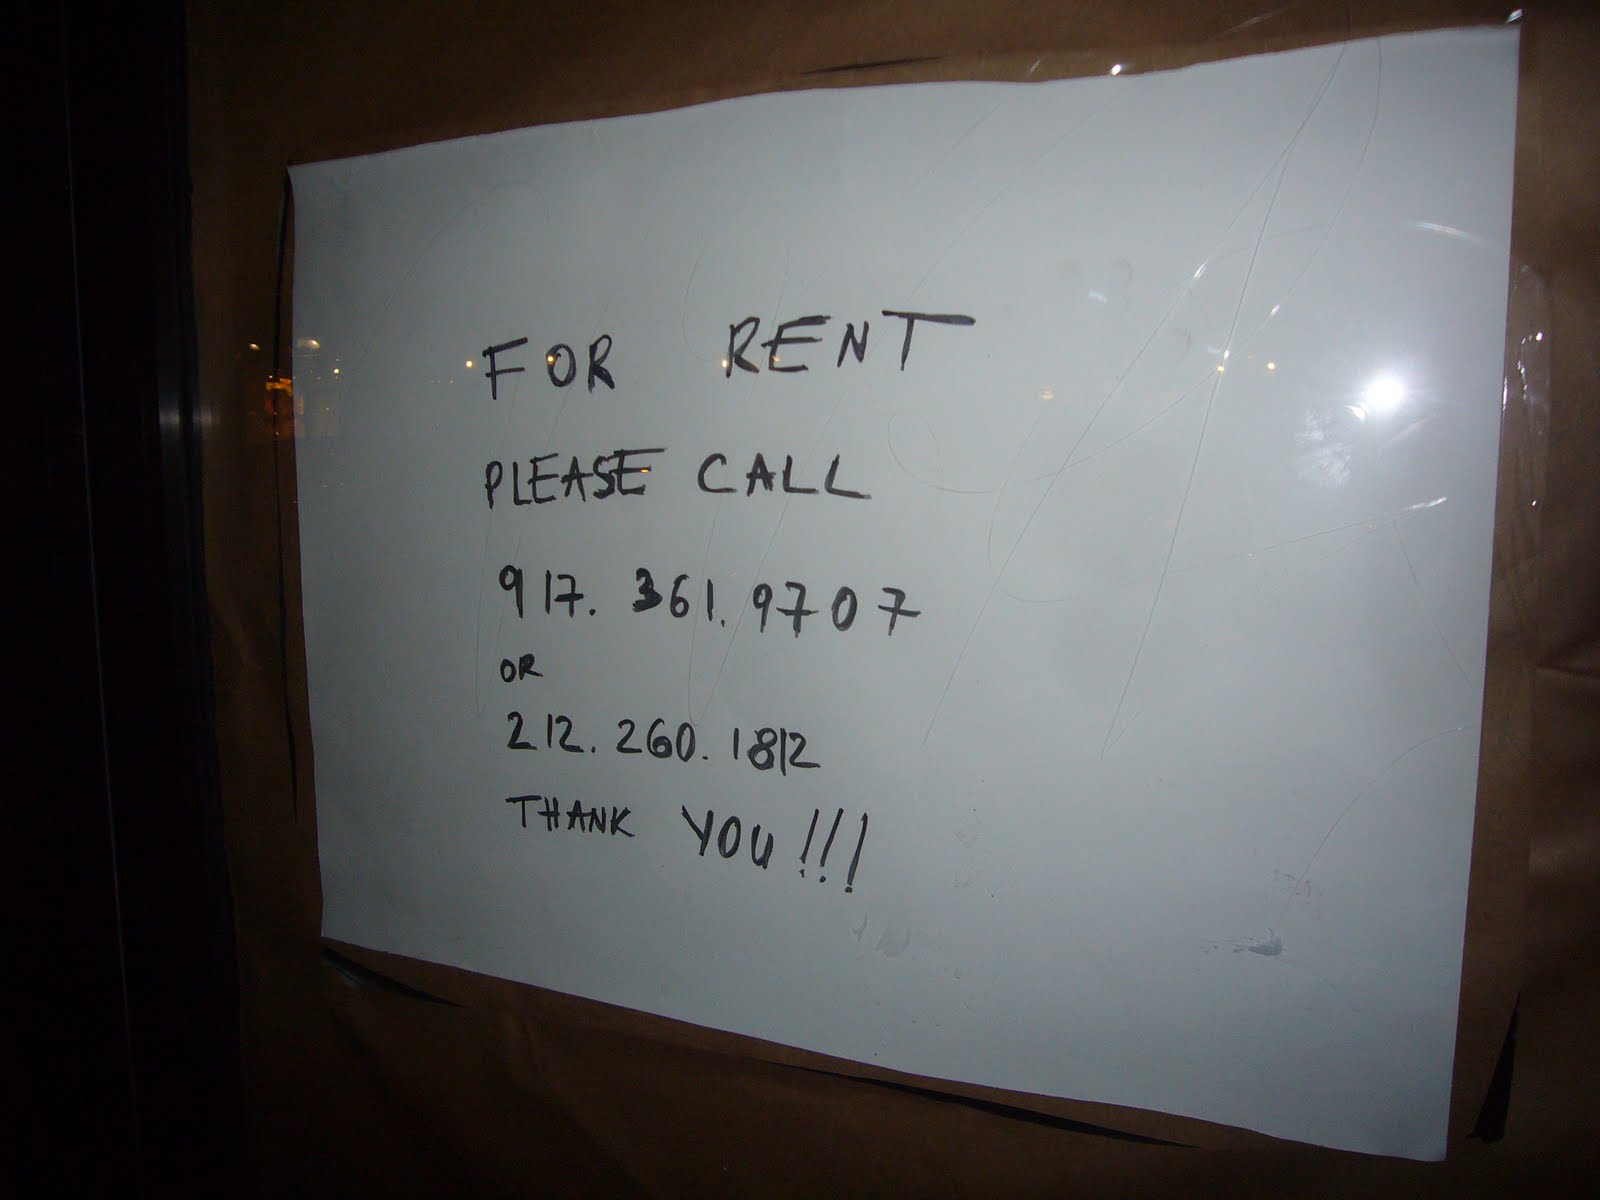 FOR RENT
PLEASE CALL
917. 361. 9707
OR
212. 260. 1812
THANK YOU!!!